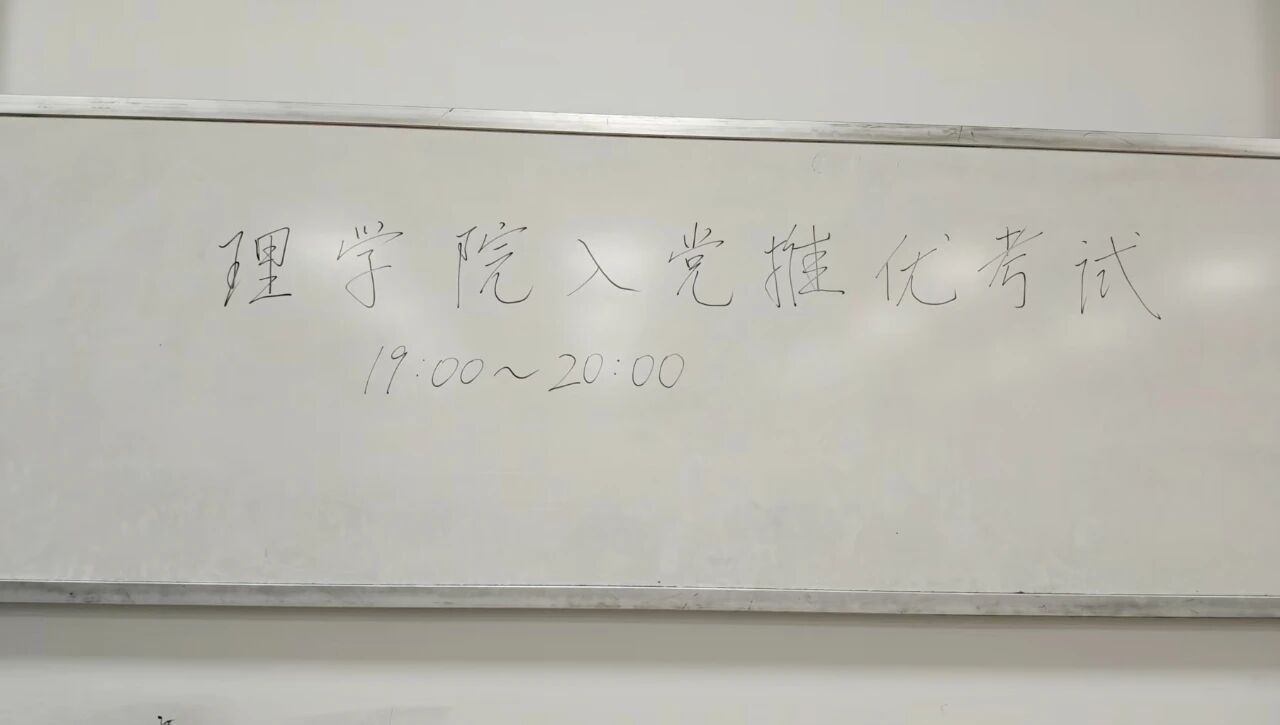 理学院入党推优考试
19:00~20:00